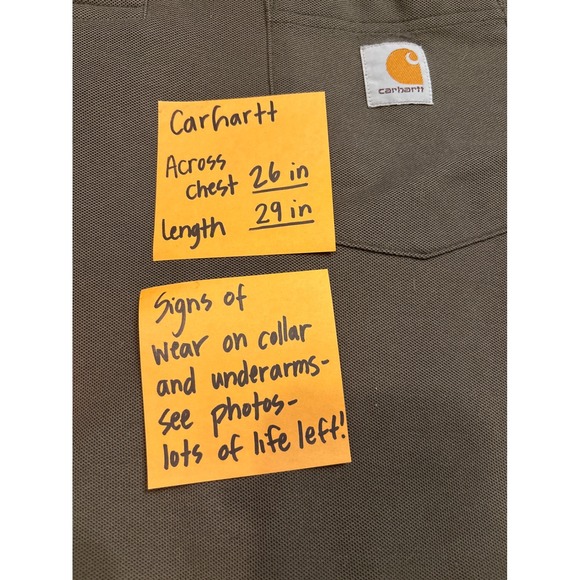 carhartt
Carhartt
Across
chest 26 in
length 29 in
Signs of
wear on collar
and underarms-
see photos-
lots of life left!